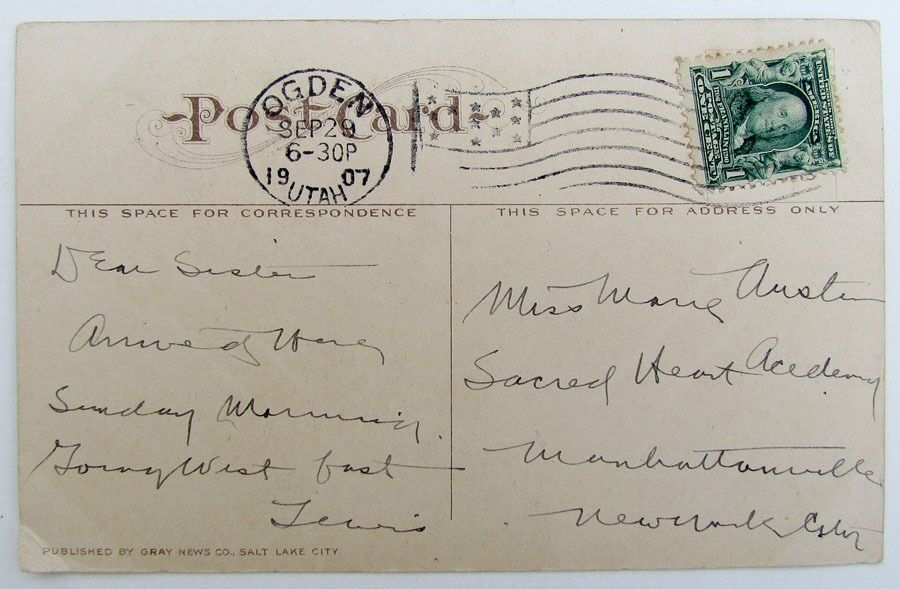 Post Card
OGDEN
SEP 29
6-30P
1907
UTAH
1 1
THIS SPACE FOR CORRESPONDENCE
THIS SPACE FOR ADDRESS ONLY
Dear Sister
Arrived Here
Sunday Morning.
Going West fast
Lewis
Miss Marie Austin
Sacred Heart Acedemy
Manhattanville
New York City
PUBLISHED BY GRAY NEWS CO., SALT LAKE CITY.